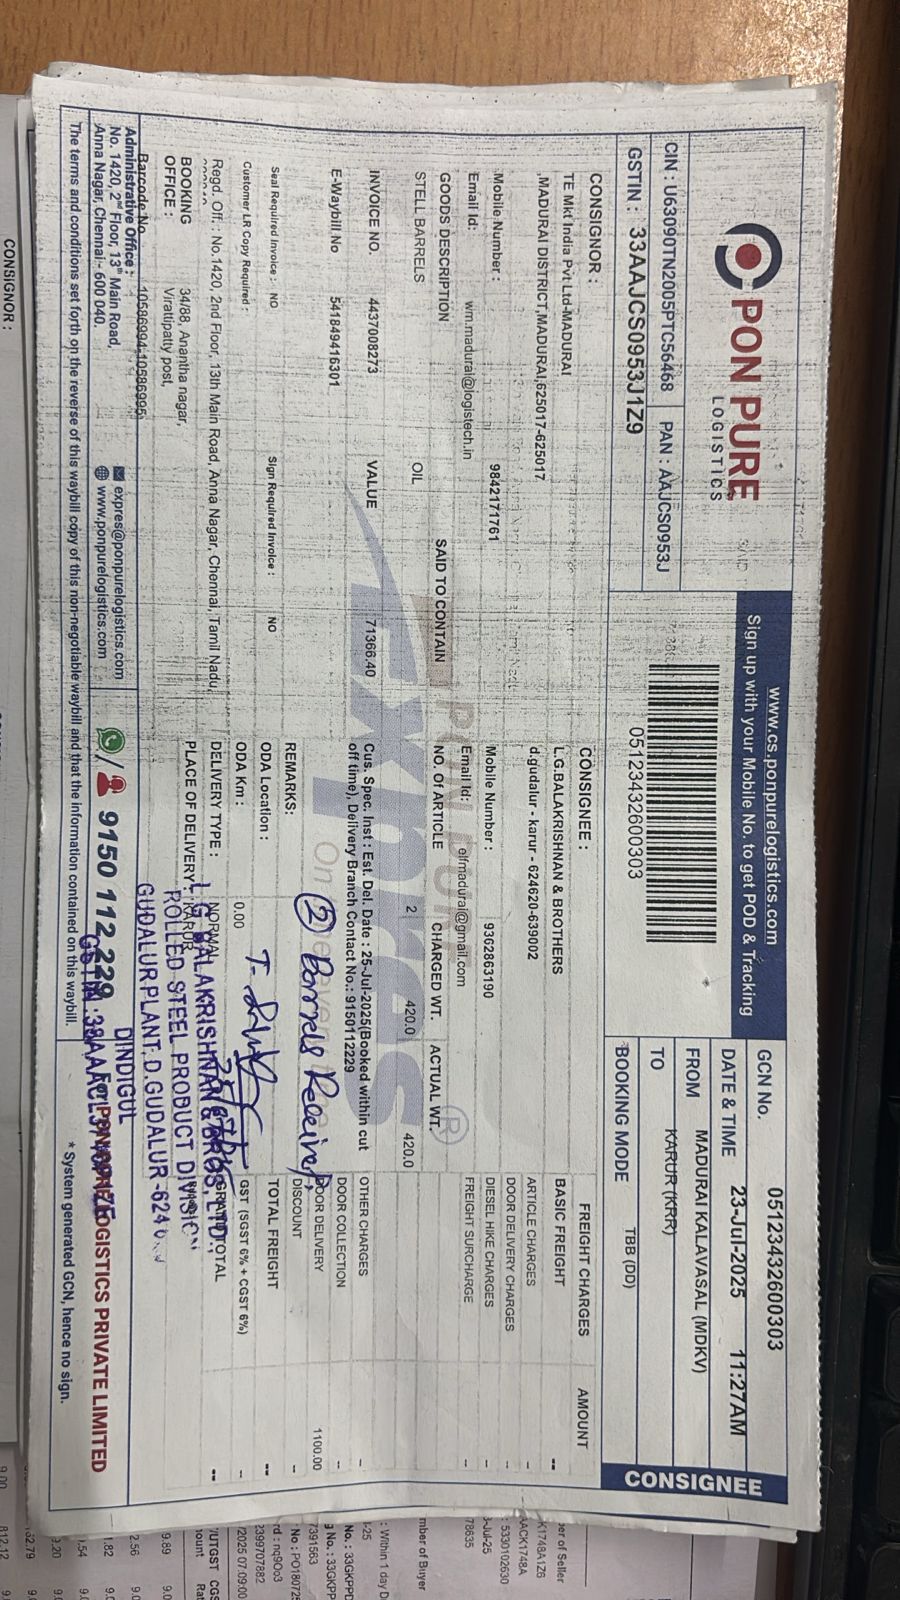 PON PURE
LOGISTICS
CIN : U63090TN2005PTC56468 PAN : AAJCS0953J
GSTIN : 33AAJCS0953J1Z9
www.cs.ponpurelogistics.com
Sign up with your Mobile No. to get POD & Tracking
05123432600303
GCN No. 05123432600303
DATE & TIME 23-Jul-2025 11:27AM
FROM MADURAI KALAVASAL (MDKV)
TO KARUR (KRR)
BOOKING MODE TBB (DD)
CONSIGNEE
CONSIGNOR :
TE Mkt India Pvt Ltd-MADURAI
,MADURAI DISTRICT,MADURAI,625017-625017
Mobile Number : 9842171761
Email Id: wm.madurai@logistech.in
CONSIGNEE :
L.G.BALAKRISHNAN & BROTHERS
d.gudalur - karur - 624620-639002
Mobile Number : 9362863190
Email Id: elfmadurai@gmail.com
GOODS DESCRIPTION SAID TO CONTAIN NO. Of ARTICLE CHARGED WT. ACTUAL WT.
STELL BARRELS OIL 2 420.0 420.0
INVOICE NO. 4437008273 VALUE 71366.40
E-Waybill No 541849416301
Cus. Spec. Inst : Est. Del. Date : 25-Jul-2025(Booked within cut
off time), Delivery Branch Contact No.: 9150112229
Seal Required Invoice : NO Sign Required Invoice : NO
Customer LR Copy Required :
REMARKS:
② Barrels Received
ODA Location :
ODA Km : 0.00
DELIVERY TYPE : NORMAL
PLACE OF DELIVERY : KARUR
FREIGHT CHARGES AMOUNT
BASIC FREIGHT --
ARTICLE CHARGES --
DOOR DELIVERY CHARGES
DIESEL HIKE CHARGES --
FREIGHT SURCHARGE --
OTHER CHARGES --
DOOR COLLECTION --
DOOR DELIVERY 1100.00
DISCOUNT --
TOTAL FREIGHT --
GST (SGST 6% + CGST 6%) --
GRAND TOTAL --
Regd. Off. : No.1420, 2nd Floor, 13th Main Road, Anna Nagar, Chennai, Tamil Nadu,
BOOKING OFFICE : 34/88, Anantha nagar,
Virattipatty post,
Barcode No 10586994,10586995
L G BALAKRISHNAN & BROS. LTD.,
ROLLED STEEL PRODUCT DIVISION
GUDALUR PLANT, D.GUDALUR -624
DINDIGUL
Administrative Office :
No. 1420, 2nd Floor, 13th Main Road,
Anna Nagar, Chennai - 600 040.
expres@ponpurelogistics.com
www.ponpurelogistics.com
9150 112 229
For PON PURE LOGISTICS PRIVATE LIMITED
The terms and conditions set forth on the reverse of this waybill copy of this non-negotiable waybill and that the information contained on this waybill.
* System generated GCN, hence no sign.
CONSIGNOR :